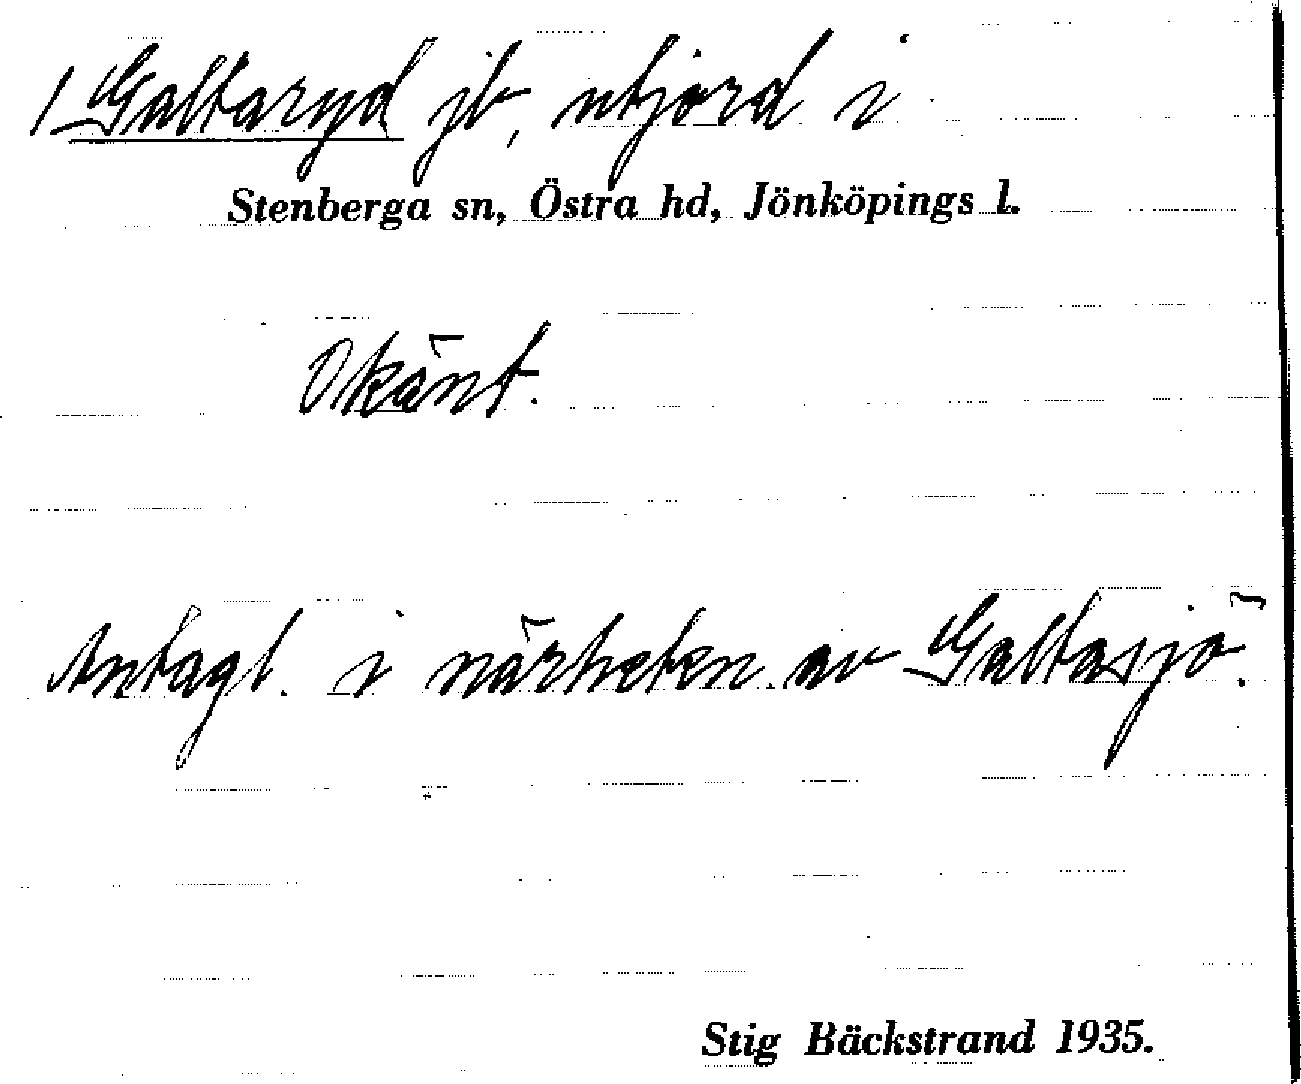 / Galtaryd jb, utjord i
Stenberga sn, Östra hd, Jönköpings l.
Okänt.
Antagl. i närheten av Galtasjö.
Stig Bäckstrand 1935.